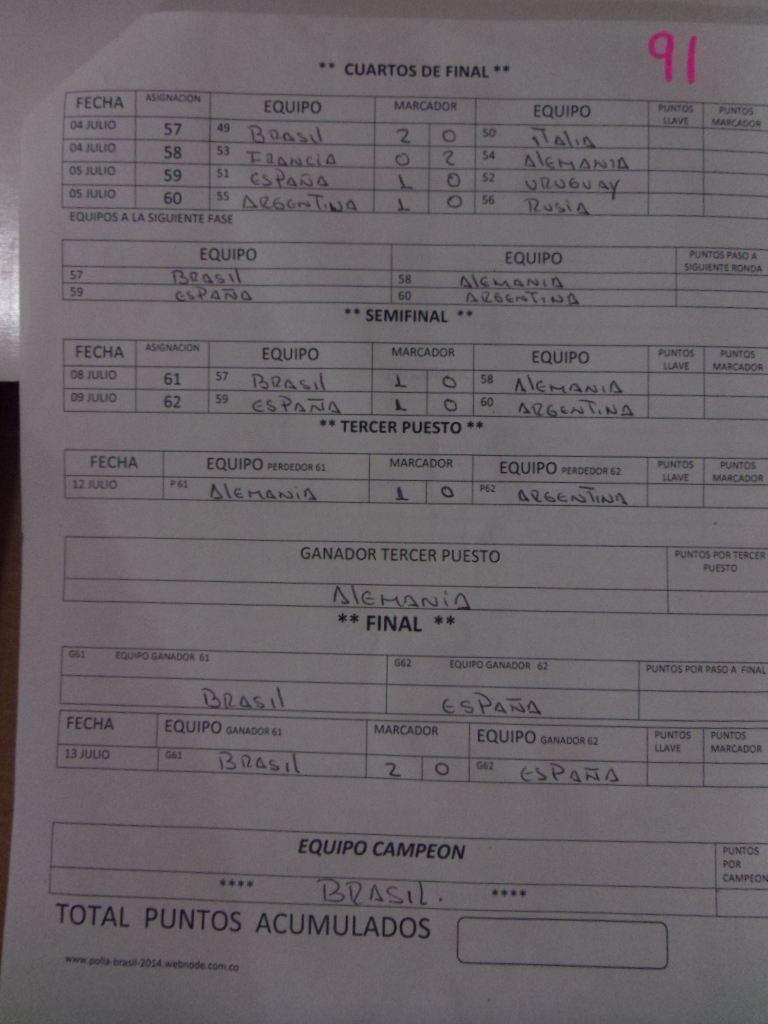 91
** CUARTOS DE FINAL **
FECHA ASIGNACION EQUIPO MARCADOR EQUIPO PUNTOS LLAVE PUNTOS MARCADOR
04 JULIO 57 49 BRASIL 2 0 50 ITALIA
04 JULIO 58 53 FRANCIA 0 2 54 ALEMANIA
05 JULIO 59 51 ESPAÑA 1 0 52 URUGUAY
05 JULIO 60 55 ARGENTINA 1 0 56 RUSIA
EQUIPOS A LA SIGUIENTE FASE
EQUIPO EQUIPO PUNTOS PASO A SIGUIENTE RONDA
57 BRASIL 58 ALEMANIA
59 ESPAÑA 60 ARGENTINA
** SEMIFINAL **
FECHA ASIGNACION EQUIPO MARCADOR EQUIPO PUNTOS LLAVE PUNTOS MARCADOR
08 JULIO 61 57 BRASIL 1 0 58 ALEMANIA
09 JULIO 62 59 ESPAÑA 1 0 60 ARGENTINA
** TERCER PUESTO **
FECHA EQUIPO PERDEDOR 61 MARCADOR EQUIPO PERDEDOR 62 PUNTOS LLAVE PUNTOS MARCADOR
12 JULIO P61 ALEMANIA 1 0 P62 ARGENTINA
GANADOR TERCER PUESTO PUNTOS POR TERCER PUESTO
ALEMANIA
** FINAL **
G61 EQUIPO GANADOR 61 G62 EQUIPO GANADOR 62 PUNTOS POR PASO A FINAL
BRASIL ESPAÑA
FECHA EQUIPO GANADOR 61 MARCADOR EQUIPO GANADOR 62 PUNTOS LLAVE PUNTOS MARCADOR
13 JULIO G61 BRASIL 2 0 G62 ESPAÑA
EQUIPO CAMPEON PUNTOS POR CAMPEON
**** BRASIL. ****
TOTAL PUNTOS ACUMULADOS
www.polla-brasil-2014.webnode.com.co